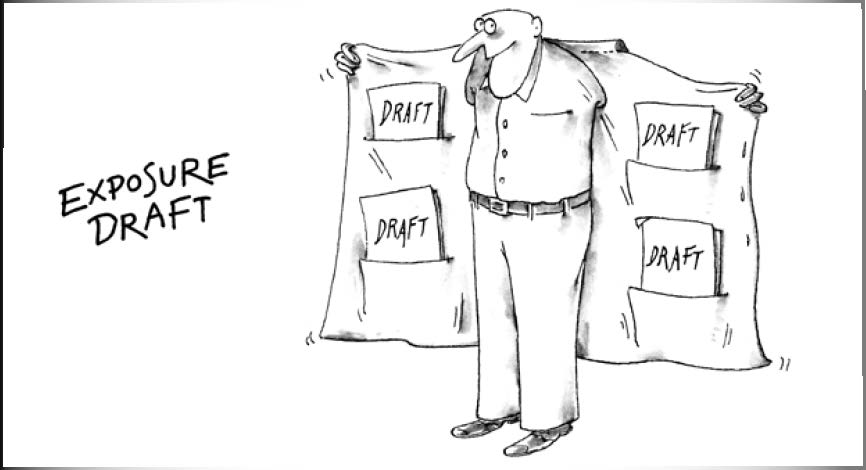 EXPOSURE
DRAFT
DRAFT
DRAFT
DRAFT
DRAFT